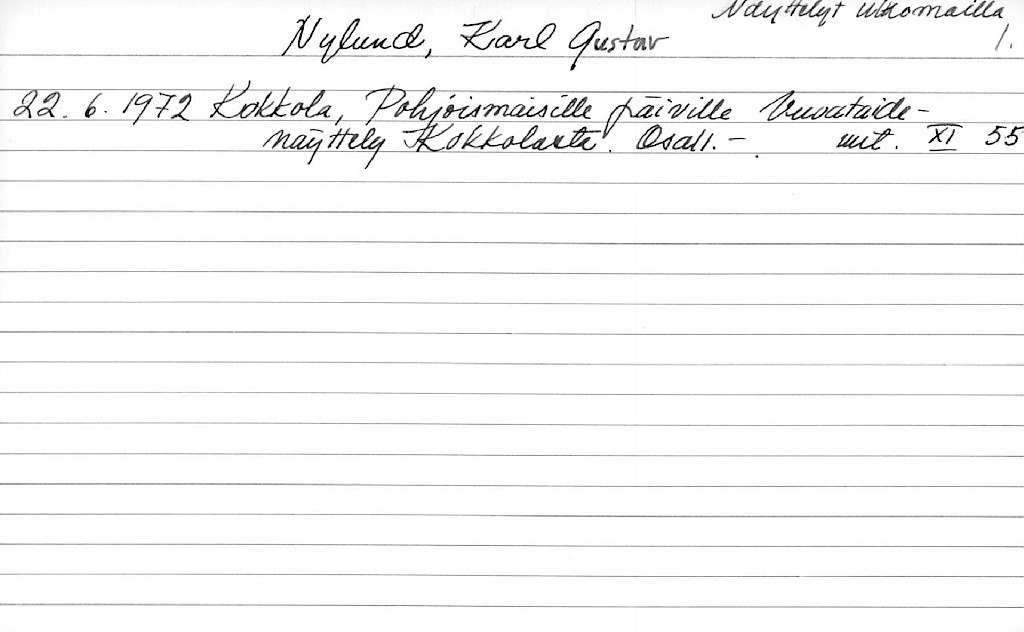 Näyttelyt ulkomailla
1.
Nylund, Karl Gustav
22. 6. 1972 Kokkola, Pohjoismaisille päiville Kuvataide-
näyttely Kokkolasta. Osall. - XI 55